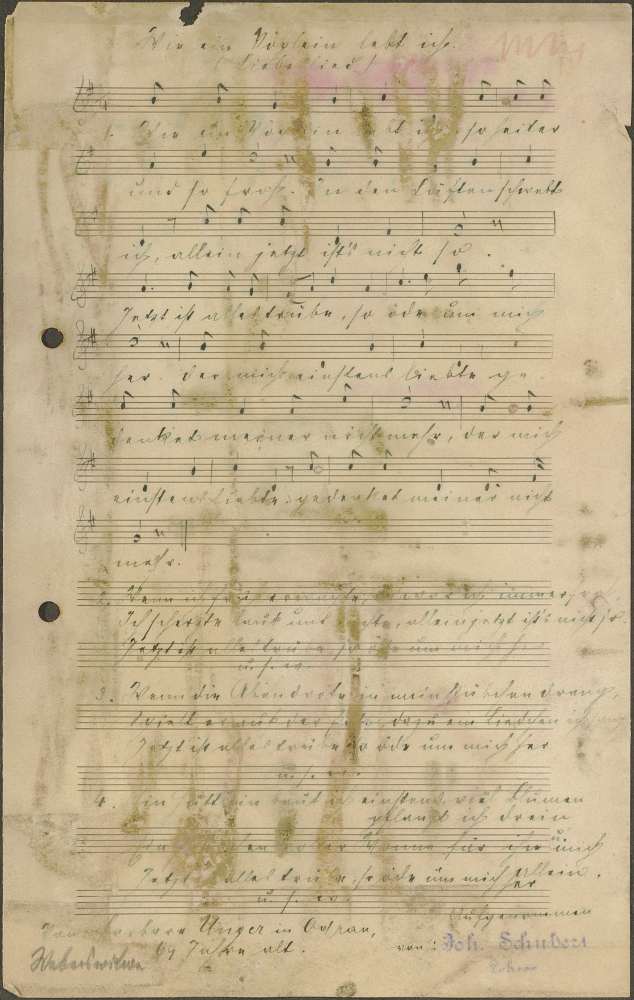 Wie ein Vöglein lebt ich.
(Liebeslied)
1. Wie ein Vöglein lebt ich, so heiter
und so froh. In den Lüften schwebt
ich, allein jetzt ist's nicht so.
Jetzt ist alles trübe, so öde um mich
her. Der mich einstens liebte ge-
denket meiner nicht mehr, der mich
einstens liebte, gedenket meiner nicht
mehr.
2. Wenn ich früh erwachte, war ich immer
Ich scherzte laut und, allein jetzt ist's nicht so.
Jetzt ist alles trübe so öde um mich her
u. s. w.
3. Wenn die Abendröte in mein Stübchen drang,
Spielt er auf der dazu ein Liedchen ich sang
Jetzt ist alles trübe so öde um mich her
u. s. w.
4. Ein Hüttlein baut ich einstens, viel Blumen
pflanzt ich drein
für ihn und mich
Jetzt alles trübe, so öde um mich her
allein.
u. s. w.
Unger in Odrau,
Aufgenommen
69 Jahre alt.
von: Joh. Schubert
Weberswitwe